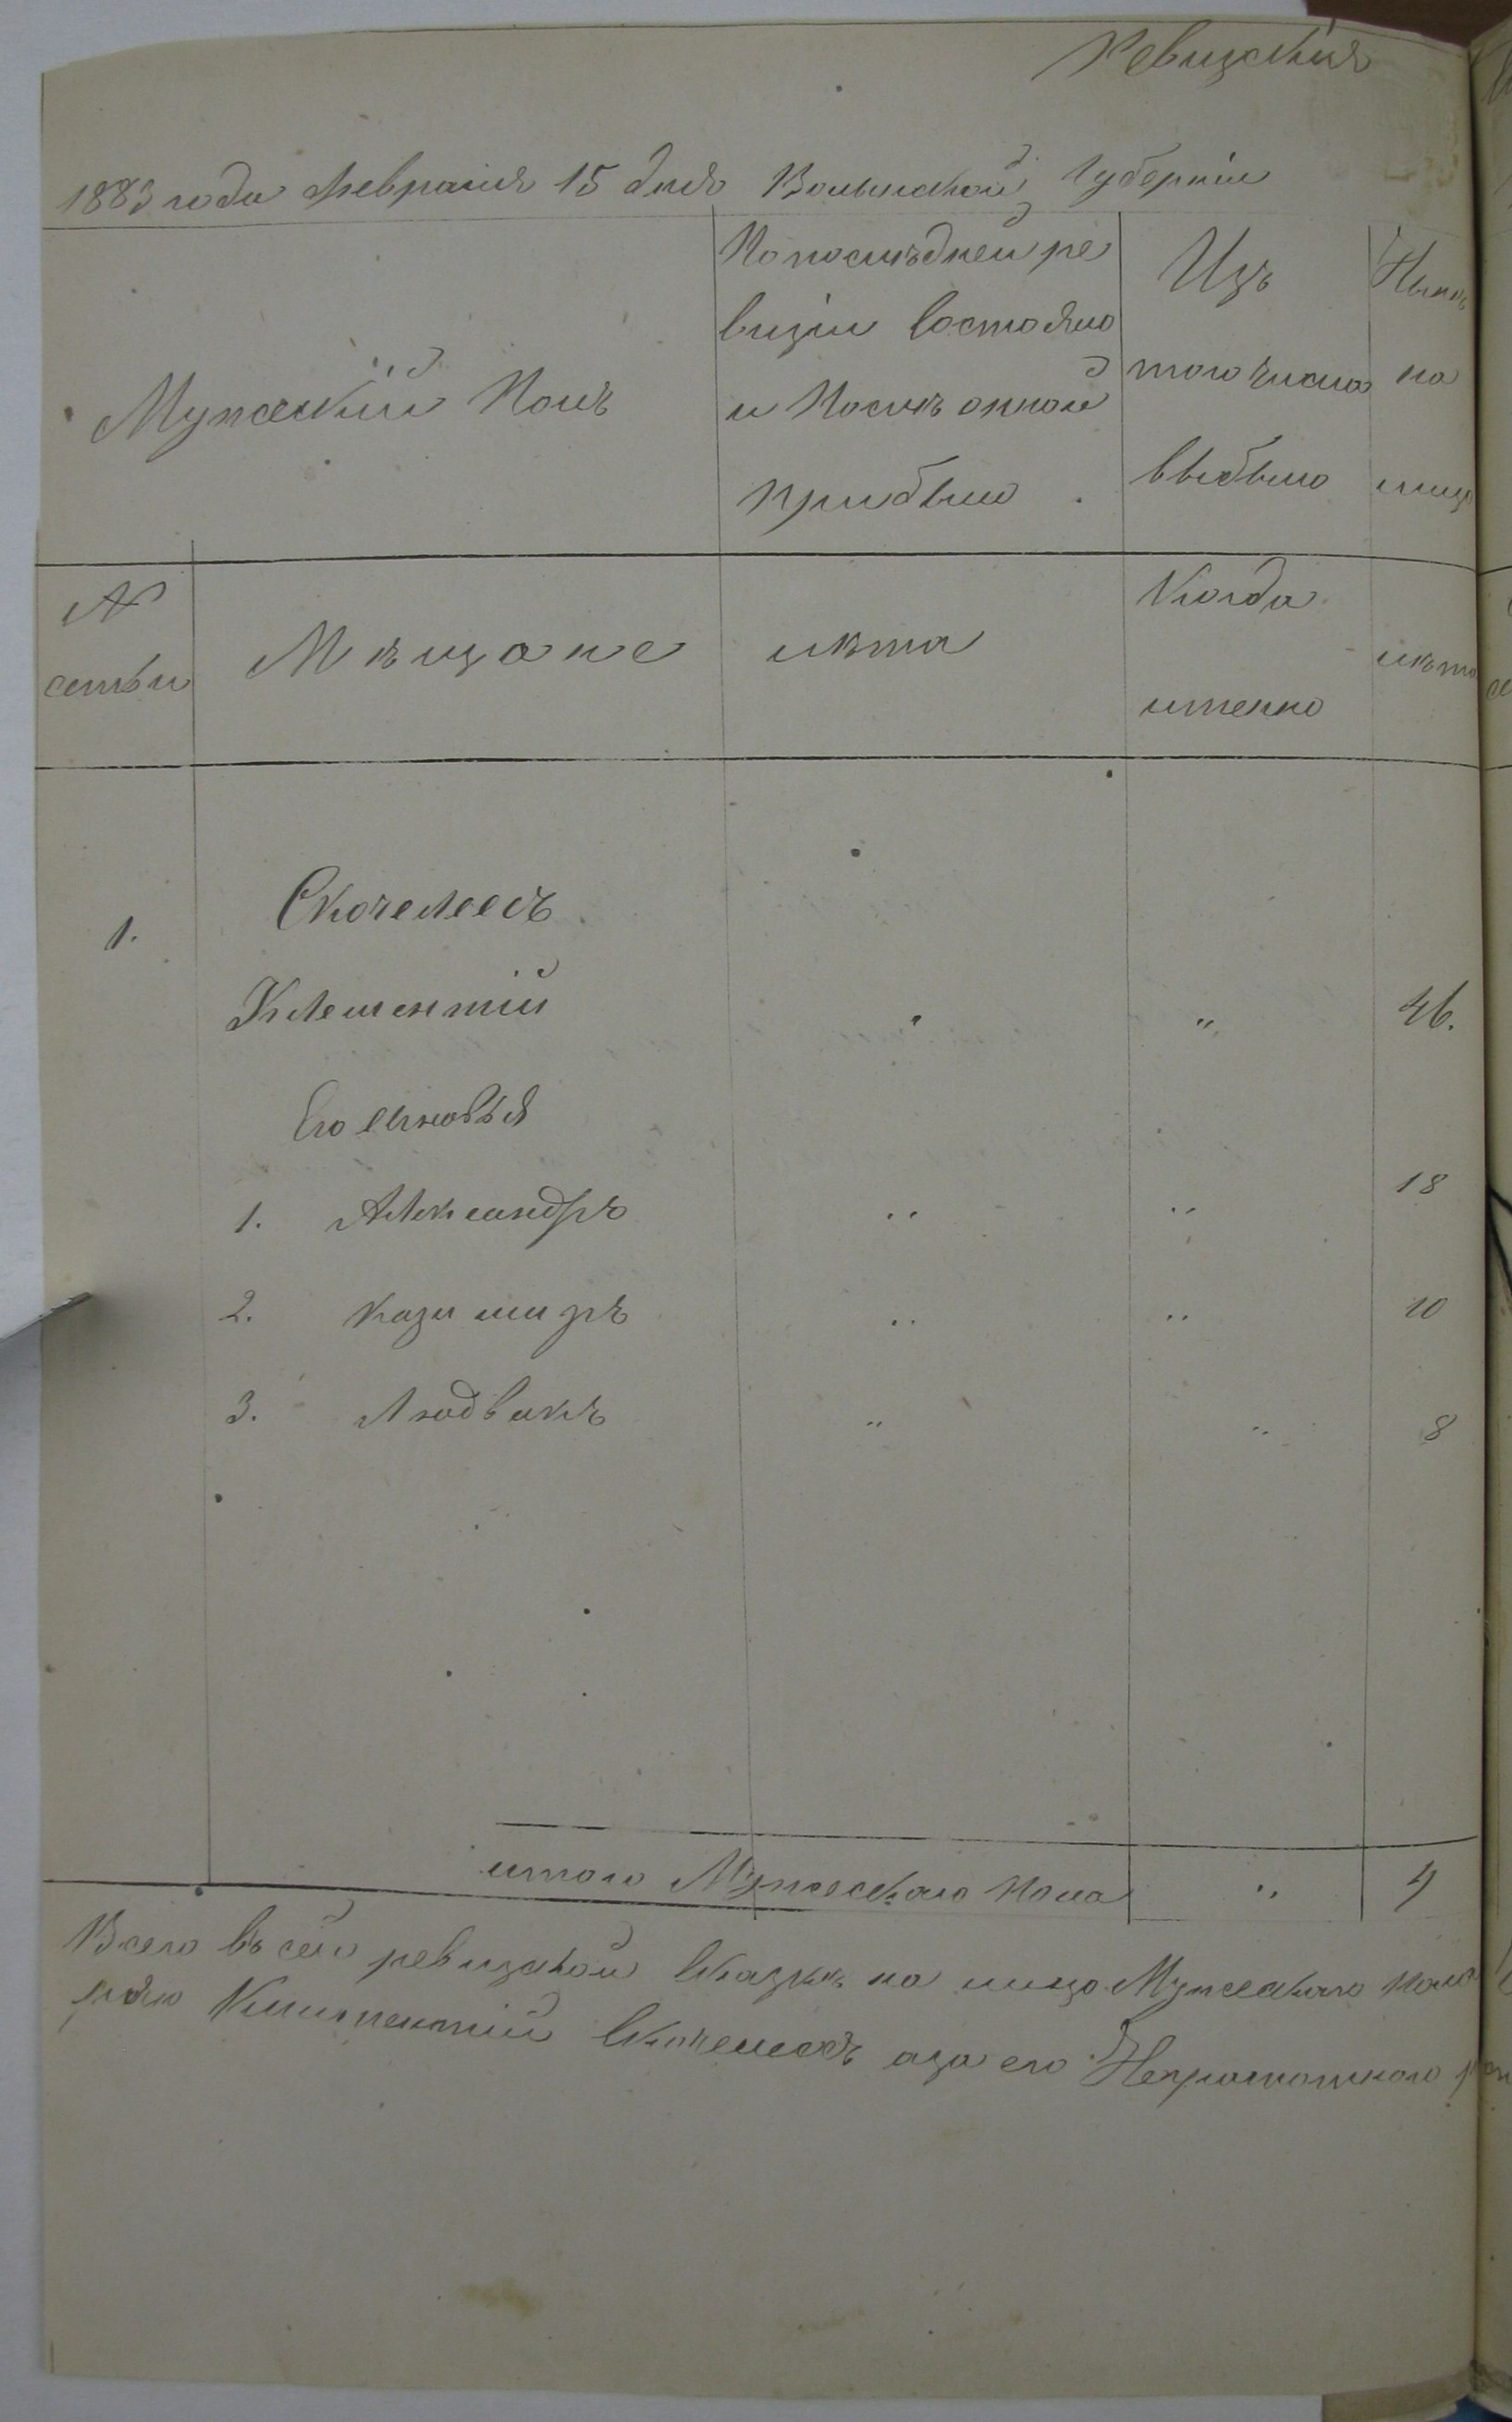 Ревизская
1883 года февраля 15 дня Волынской Губернiи
Мужескiй Полъ
По последней ре
визiи состояло
и После онной
прибыло
Изъ
того числа
выбыло
Нынѣ
на
лицо
№
семьи
Мѣщане
лѣта
Когда
именно
лѣта
1.
Скочелесъ
Клементiй
"
"
46.
Его сыновья
1. Александръ " " 18
2. Казимиръ " " 10
3. Людвикъ " " 8
итого Мужескаго Пола " 4
Всего въ сей ревизской сказкѣ на лицо Мужескаго Пола
Климентiй Скочелесъ а за его Неграмотнаго